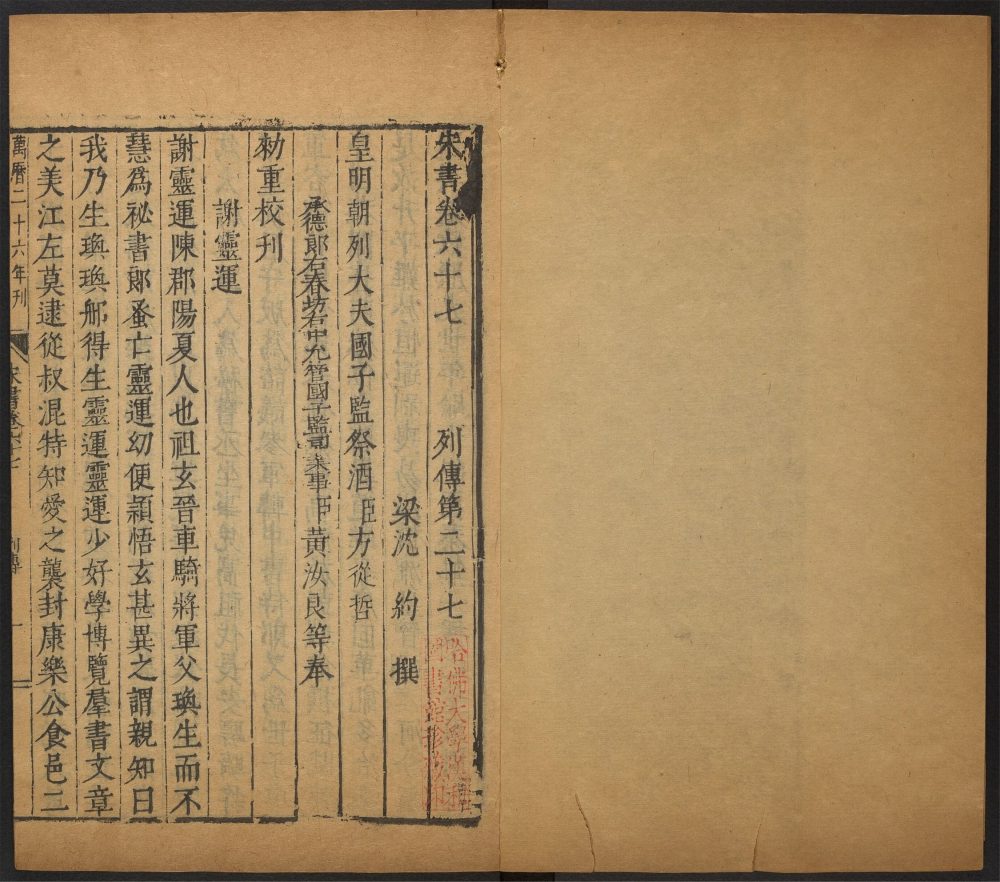 宋書卷六十七　列傳第二十七
梁沈約　撰
皇明朝列大夫國子監祭酒臣方從哲
承德郎右春坊右中允管國子監司業事臣黃汝良等奉
勑重校刊
謝靈運
謝靈運陳郡陽夏人也祖玄晉車騎將軍父瑍生而不
慧爲祕書郎蚤亡靈運幼便頴悟玄甚異之謂親知曰
我乃生瑍瑍那得生靈運靈運少好學博覽羣書文章
之美江左莫逮從叔混特知愛之襲封康樂公食邑二
萬曆二十六年刊
宋書卷六十七
列傳
一
哈佛大學漢和
圖書館珍藏印